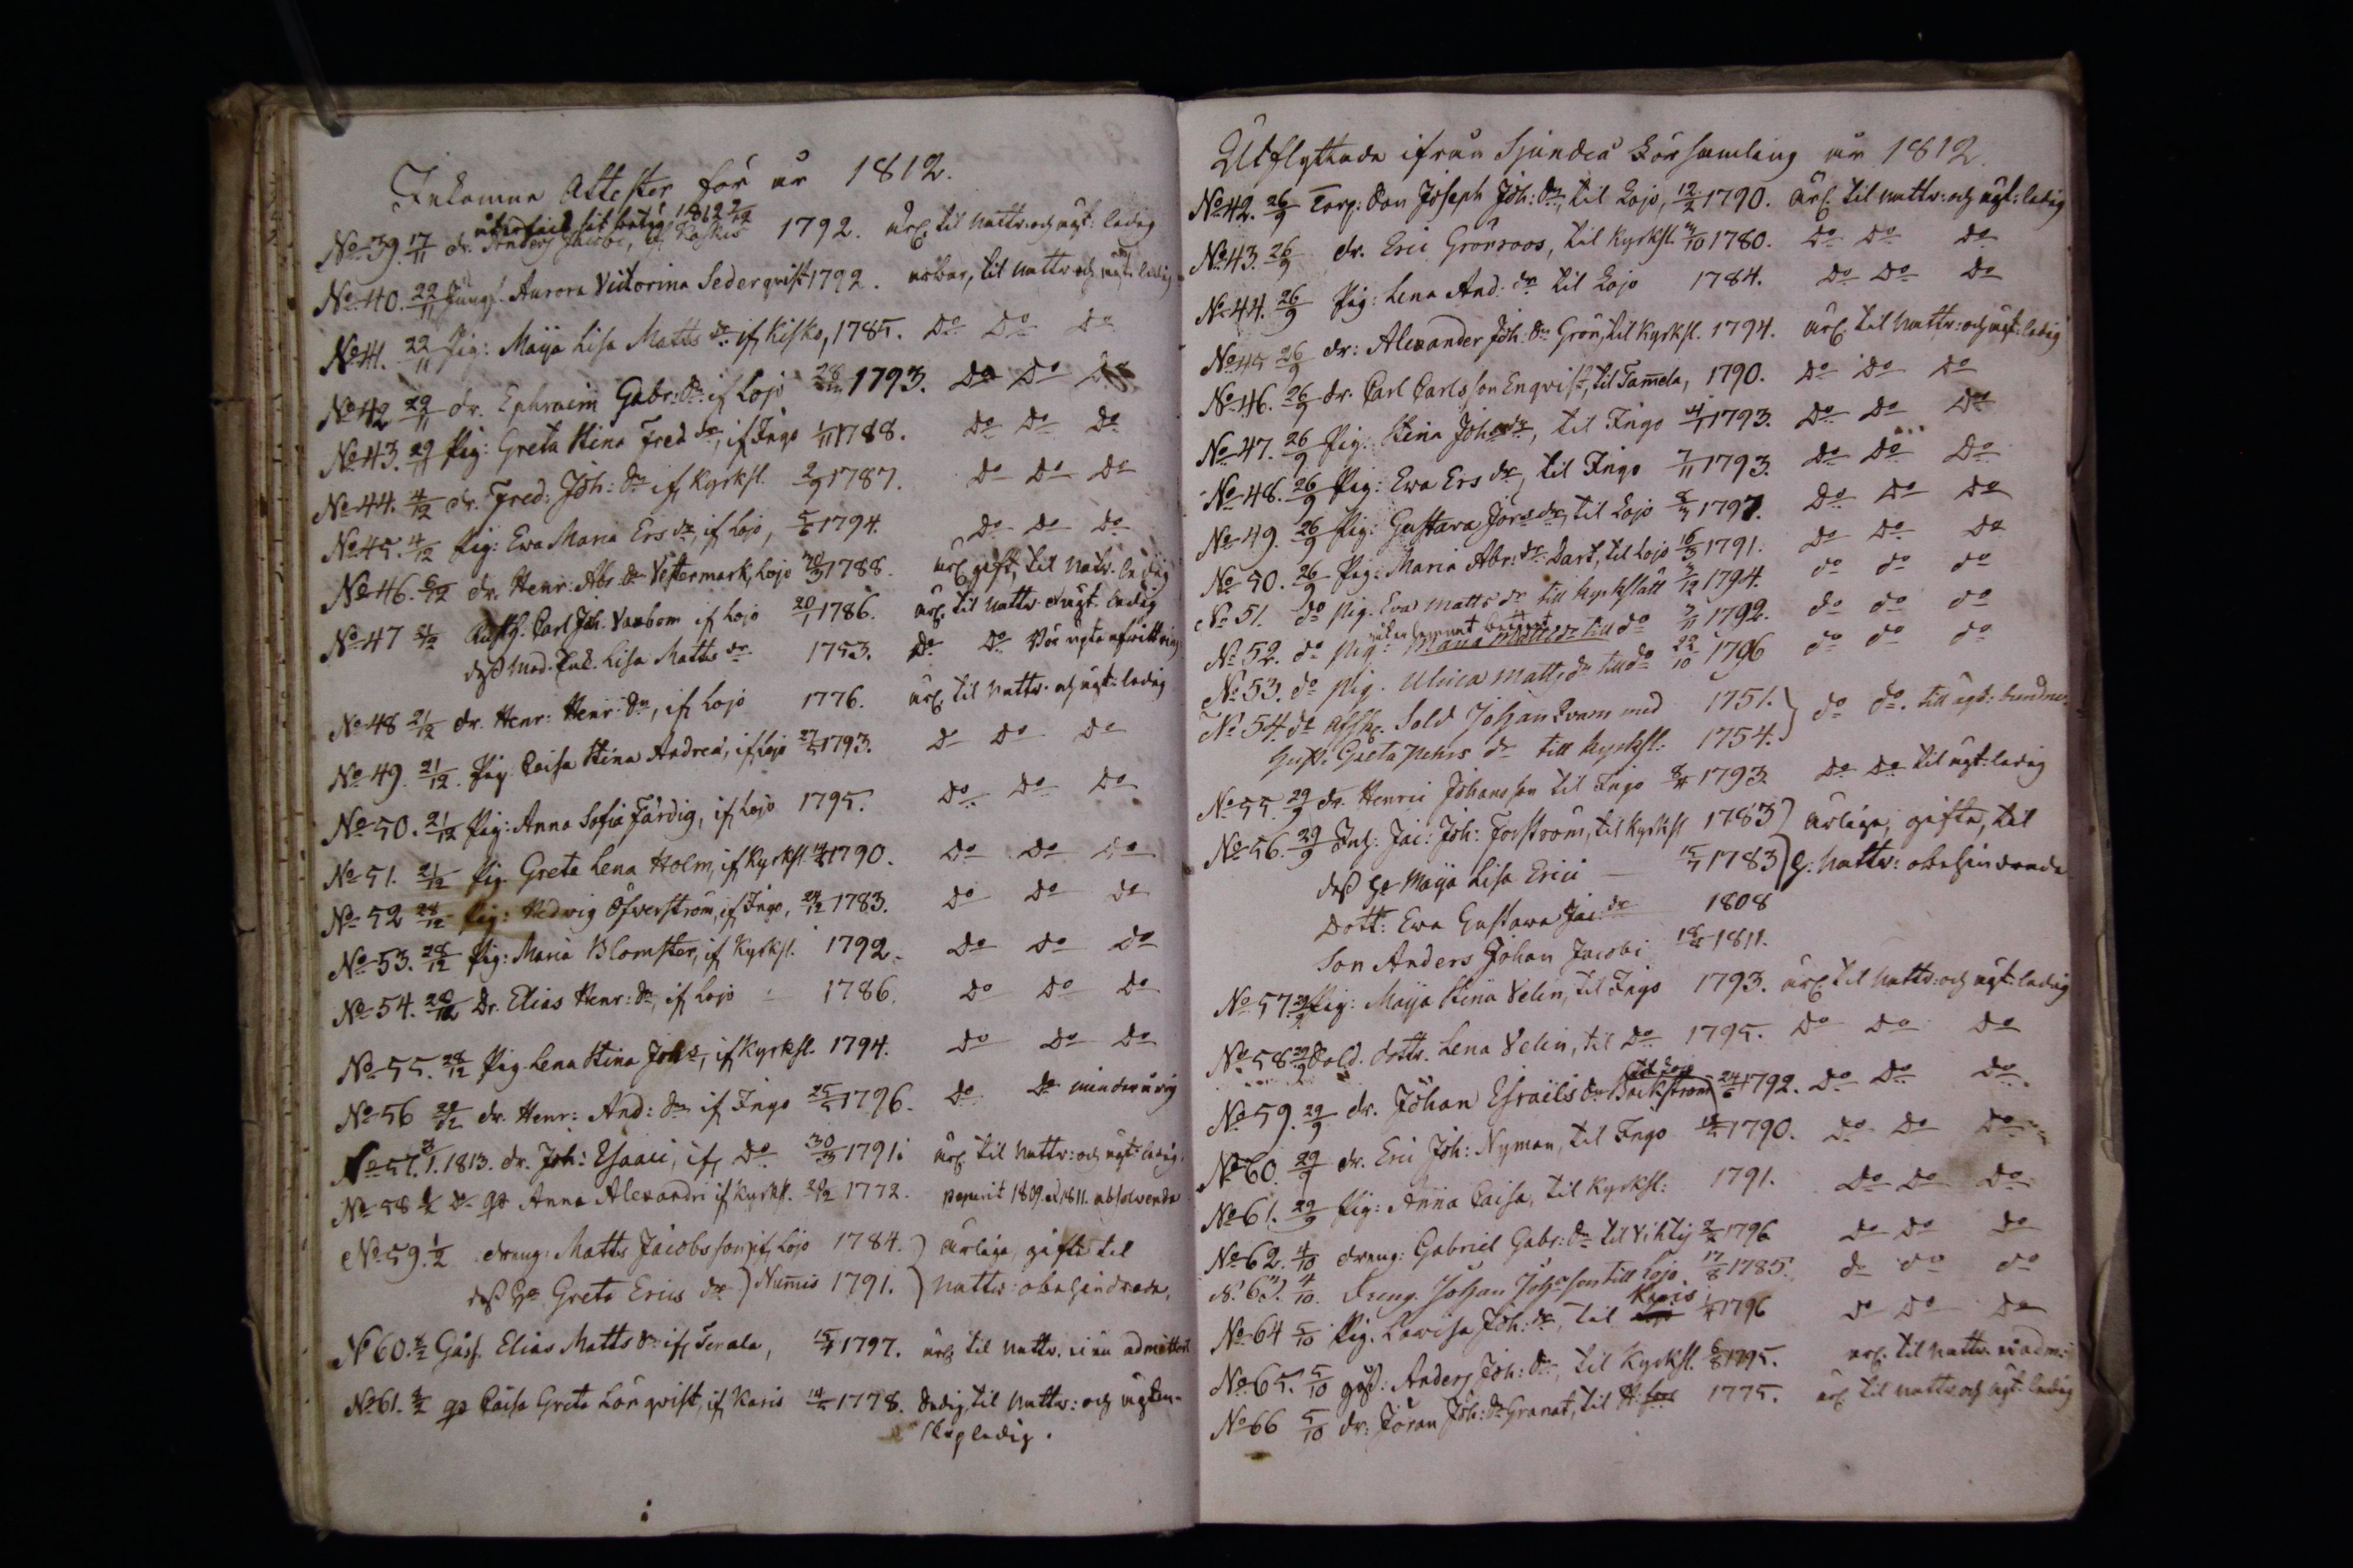 Inkomne Attester för år 1812.
återtaid sit betÿg 1812 2/12
No 39. 17/11 dr. Anders Jacobi, if Kaskis 1792. ärl. til nattv. och ägt: ledig
No 40. 22/11 Jungf. Aurora Victorina Sederqvist 1792. ärbar, til nattv och ägt. ledig
No 41. 22/11 Pig: Maija Lisa Matts dr. if Kisko, 1785. Do Do Do
No 42 29/11 dr. Ephraim Gabr: Sn if Lojo 1793. Do Do Do
No 43. 29/11 Pig: Greta Stina Fred dr, if Ingo 1/11 1788. Do Do Do
No 44. 4/12 dr. Fred: Joh: Sn if Kyrksl. 2/9 1787. Do Do Do
No 45. 4/12 Pig: Ewa Maria Ers dr, if Lojo, 1794. Do Do Do
No 46. 6/12 dr. Henr: Abr. Sn Vestermark, Lojo 1788. ärl. gift, til nattv. ledig
No 47 Carl Joh. Vaxbom if Lojo 20/1 1786. ärl. til nattv. ägt. ledig
dess mod. Enk. Lisa Matts dr. 1753. Do Do
No 48 21/12 dr. Henr: Henr: Sn, if Lojo 1776. ärl. til nattv. och ägt: ledig
No 49. 21/12. Pig. Caisa Stina Andreæ, if Lojo 1793. Do Do Do
No 50. 21/12 Pig: Anna Sofia Färdig, if Lojo 1795. Do Do Do
No 51. 21/12 Pig. Greta Lena Holm, if Kyrksl. 1790. Do Do Do
No 52 28/12 Pig: Hedwig Öfverström, if Ingo, 24/12 1783. Do Do Do
No 53. 28/12 Pig: Maria Blomster, if Kyrksl. 1792. Do Do Do
No 54. 28/12 Dr. Elias Henr: Sn, if Lojo 1786. Do Do Do
No 55. 28/12 Pig. Lena Stina Joh dr, if Kyrksl. 1794. Do Do Do
No 56 29/12 dr. Henr: And: Sn if Ingo 1796. Do Do minderårig
No 57. 3/1. 1813. dr. Joh: Esaaci, if Do 30/3 1791. ärl. til nattv: och ägt: ledig.
No 58 Anna Alexandri if Kyrksl. 1772. peperit 1809 et 1811. absolverada
No 59. 1/2 dräng: Matts Jacobsson, if Lojo 1784. ärlige, gifte til
dess Ha Greta Erics dr Numis 1791. nattv: obehindrade.
No 60. Goss. Elias Matts Sn if Tenala, 1797. ärl. til nattv. ei än admitterad
No 61. Caisa Greta Lönqvist, if Karis 1778. dödig til nattv: och ägten-
skap ledig.
Utflyttade ifrån Sjundeå Församling år 1812.
No 42. 26/9 Torp: Son Joseph Joh: Sn, til Lojo, 12/2 1790. ärl. til nattv: och ägt: ledig
No 43. 26/9 dr. Eric Grönroos, til Kyrksl. 1780. Do Do Do
No 44. 26/9 Pig: Lena And: dr til Lojo 1784. Do Do Do
No 45 26/9 dr: Alexander Joh. Sn Grön, til Kyrksl. 1794. ärl. til nattv: och ägt: ledig
No 46. 26/9 dr. Carl Carlsson Enqvist, til Tamela, 1790. Do Do Do
No 47. 26/9 Pig: Stina Joh dr, til Ingo 1793. Do Do Do
No 48. 26/9 Pig: Ewa Ers dr, til Ingo 7/11 1793. Do Do Do
No 49. 26/9 Pig: Gustava Jörs dr, til Lojo 1797. Do Do Do
No 50. 26/9 Pig: Maria Abr: dr. Dart, til Lojo 16/3 1791. Do Do Do
No 51. do Pig. Eva Matts dr till Kyrkslätt 1794. do do do
No 52. do Pig: Maria Matts dr till do 1792. do do do
No 53. do Pig. Ulrica Matts dr till do 22/10 1796 do do do
No 54. do Afsk. Sold Johan Svan med 1751. do do. till ägt: bundne.
Hust. Greta Pehrs dr till Kyrksl: 1754.
No 55 29/9 dr. Henric Johansson til Ingo 1793 Do Do til ägt: ledig
No 56. 29/9 Inh: Jac: Joh: Forsström, til Kyrksl 1783 ärlige, gifte, til
dess Ha Maija Lisa Erici 1783 H. nattv: obehindrade
Dott: Ewa Gustava Jac: dr 1808
Son Anders Johan Jacobi 1811.
No 57. 29/9 Pig: Maija Stina Velin, til Ingo 1793. ärl. til nattv: och ägt: ledig
No 58 29/9 Sold. dottr. Lena Velin, til Do 1795. Do Do Do
No 59. 29/9 dr. Johan Esraëls Sn Bäckström til Lojo 1792. Do Do Do
No 60. 29/9 dr. Eric Joh: Nyman, til Ingo 1790. Do Do Do
No 61. 29/9 Pig: Anna Caisa, til Kyrksl: 1791. Do Do Do
No 62. 4/10 dräng: Gabriel Gabr: Sn til Vihtij 1796 Do Do Do
No 63. 4/10. Dreng. Johan Johansson till Lojo. 17/8 1785. do do do
No 64 5/10 Pig. Lovisa Joh: dr, til Karis 1796 Do Do Do
No 65. 5/10 goss: Anders Joh: Sn, til Kyrksl. 6/8 1795. ärl. til nattv. ei adm:
No 66 5/10 dr: Jöran Joh: Sn Granat, til 1775. ärl. til nattv. och ägt: ledig